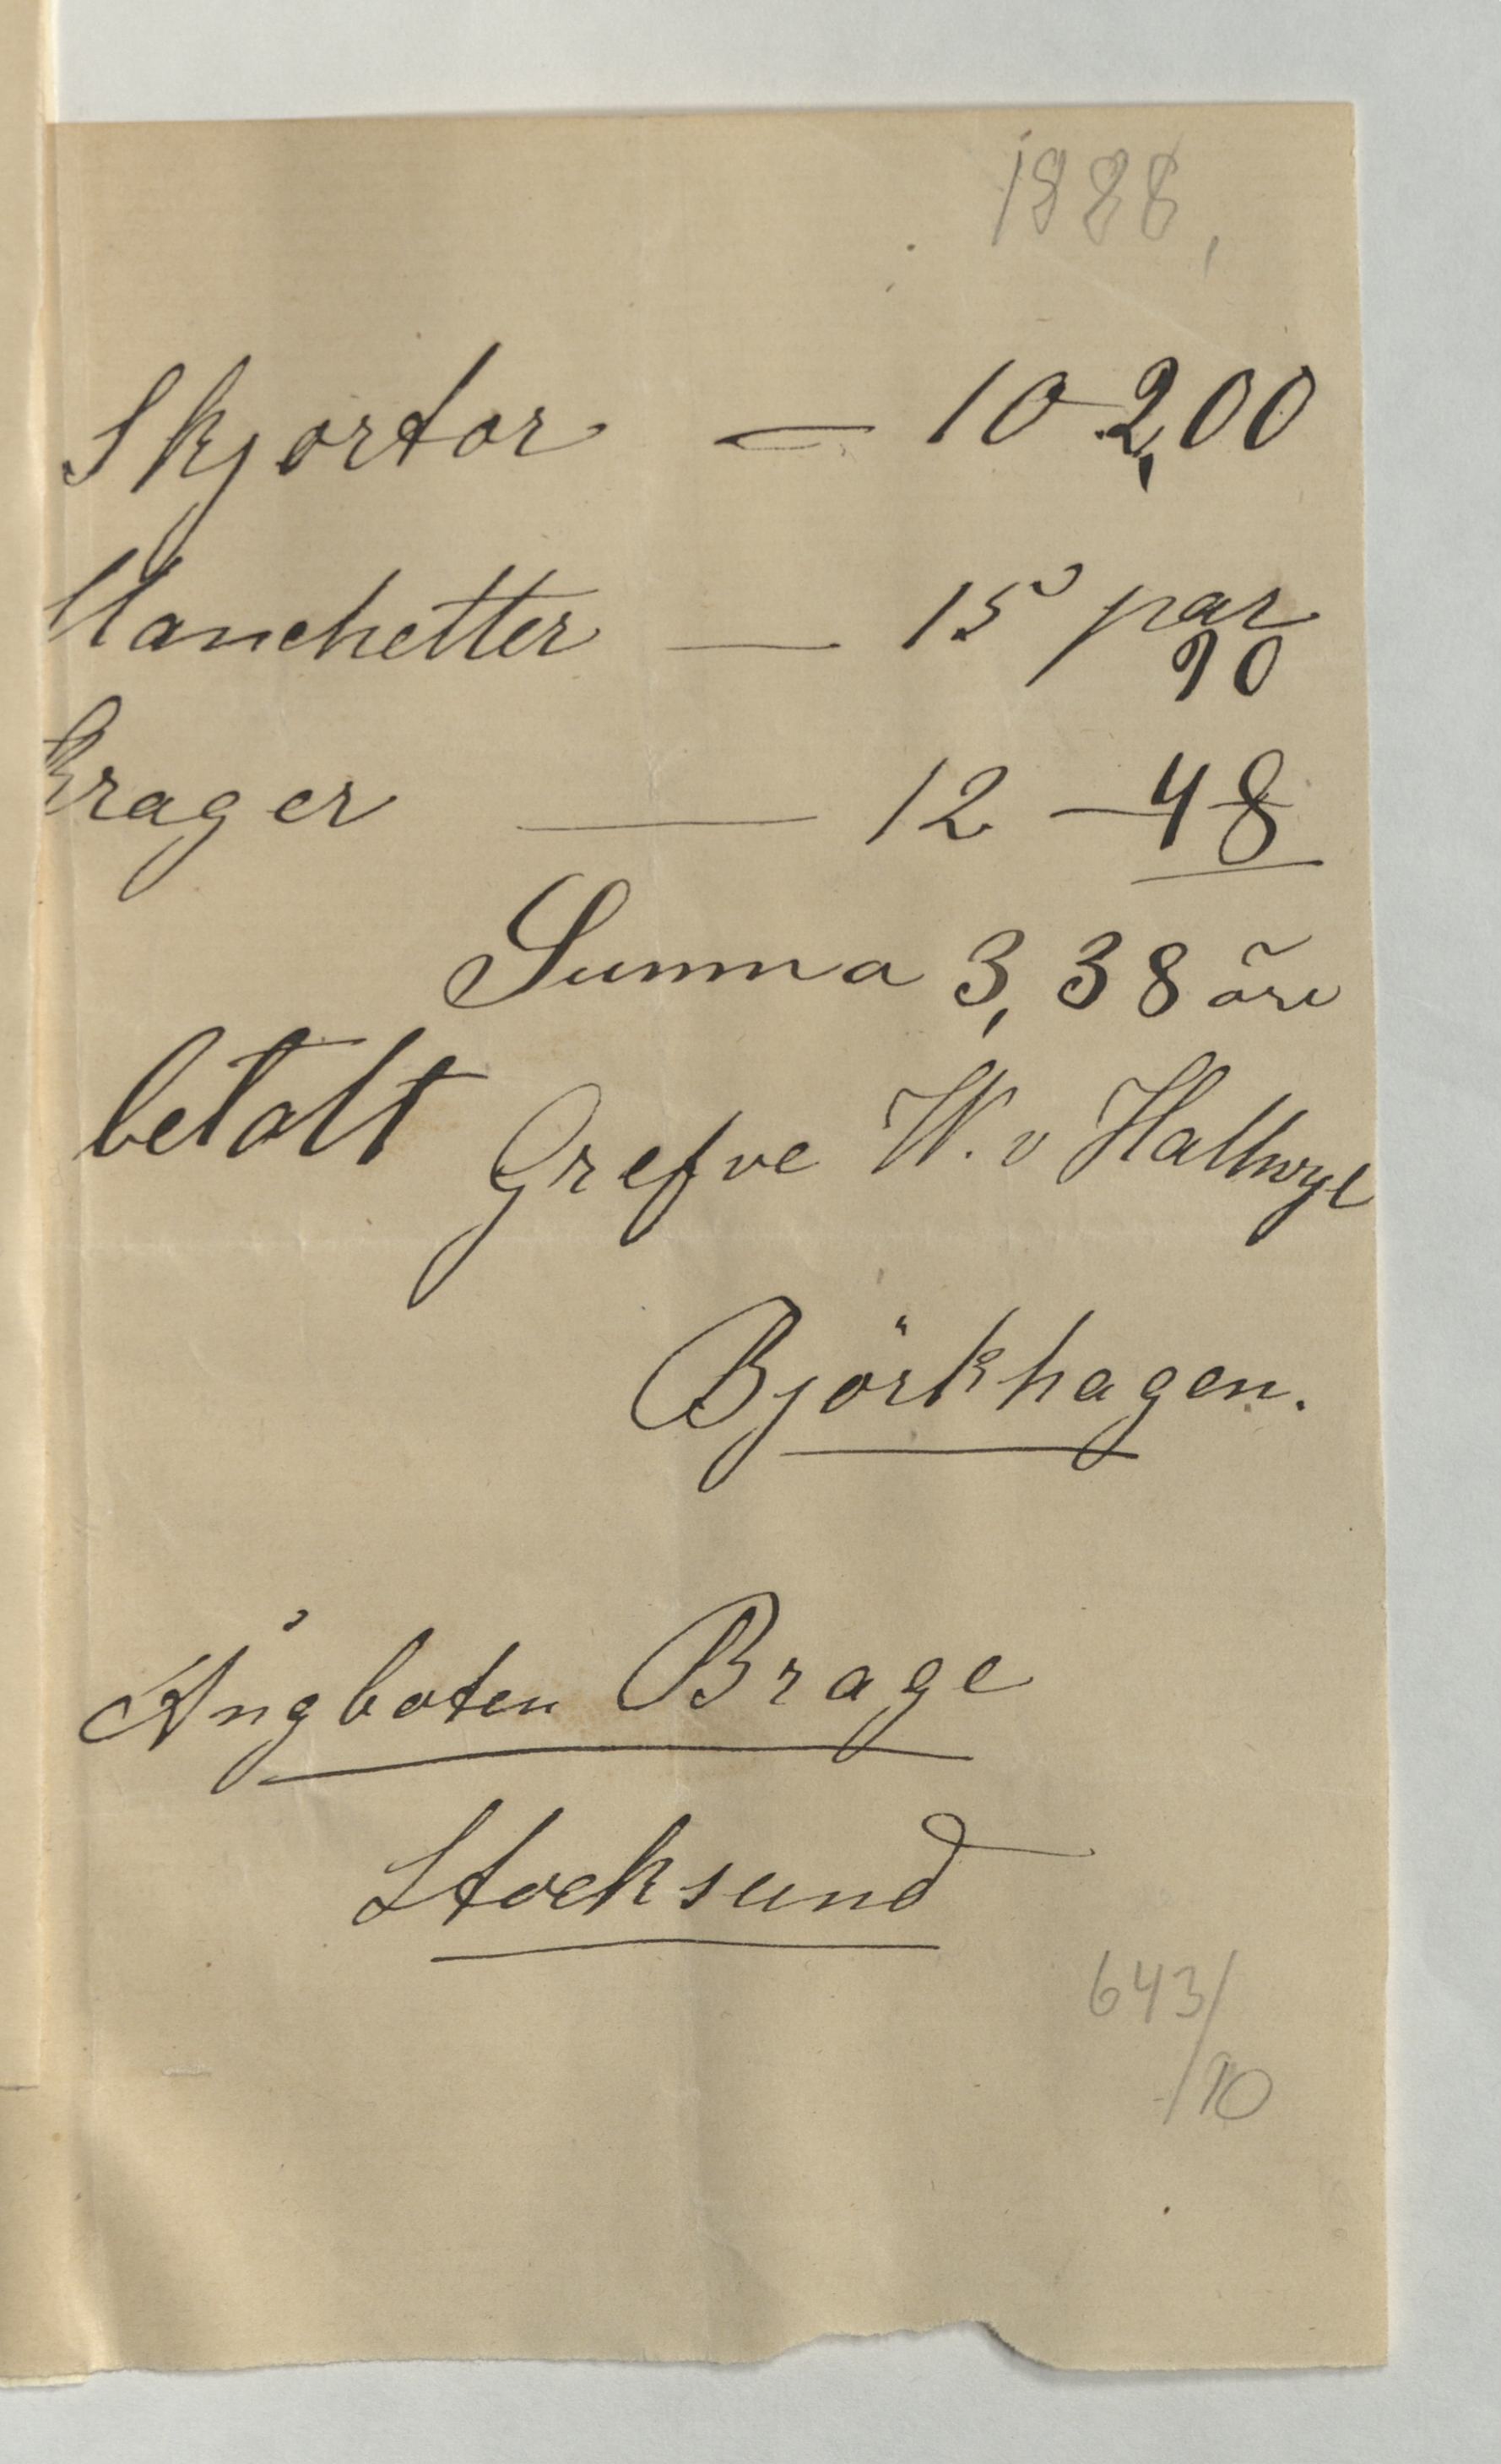 1888,
Skjortor — 10 2,00
Manchetter — 15 par
90
Krager — 12 — 48
Summa 3,38 öre
betalt Grefve W. v Hallwyl
Björkhagen.
Ångboten Brage
Stocksund
643/
/10